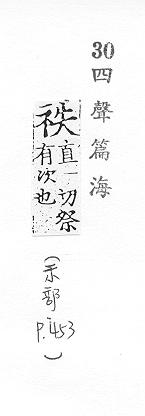 30四聲篇海
祑
直一切祭
有次也
(示部P.453)